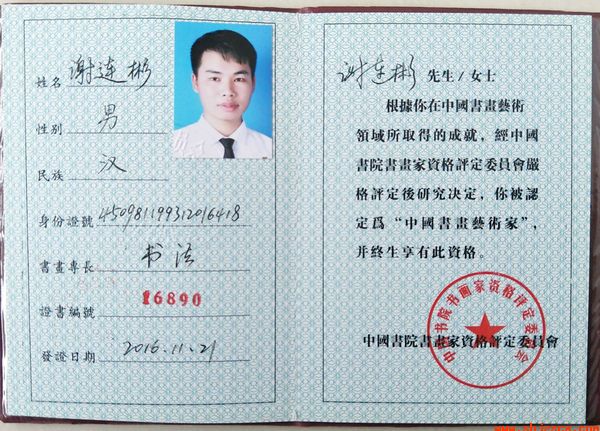 姓名 谢连彬
性别 男
民族 汉
身份證號 450981199312016418
書畫專長 书法
證書編號 16890
發證日期 2016.11.21
谢连彬 先生/女士
根據你在中國書畫藝術
領域所取得的成就，經中國
書院書畫家資格評定委員會嚴
格評定後研究决定，你被認
定爲“中國書畫藝術家”，
并終生享有此資格。
中國書院書畫家資格評定委員會
中国书院书画家资格评定委员会